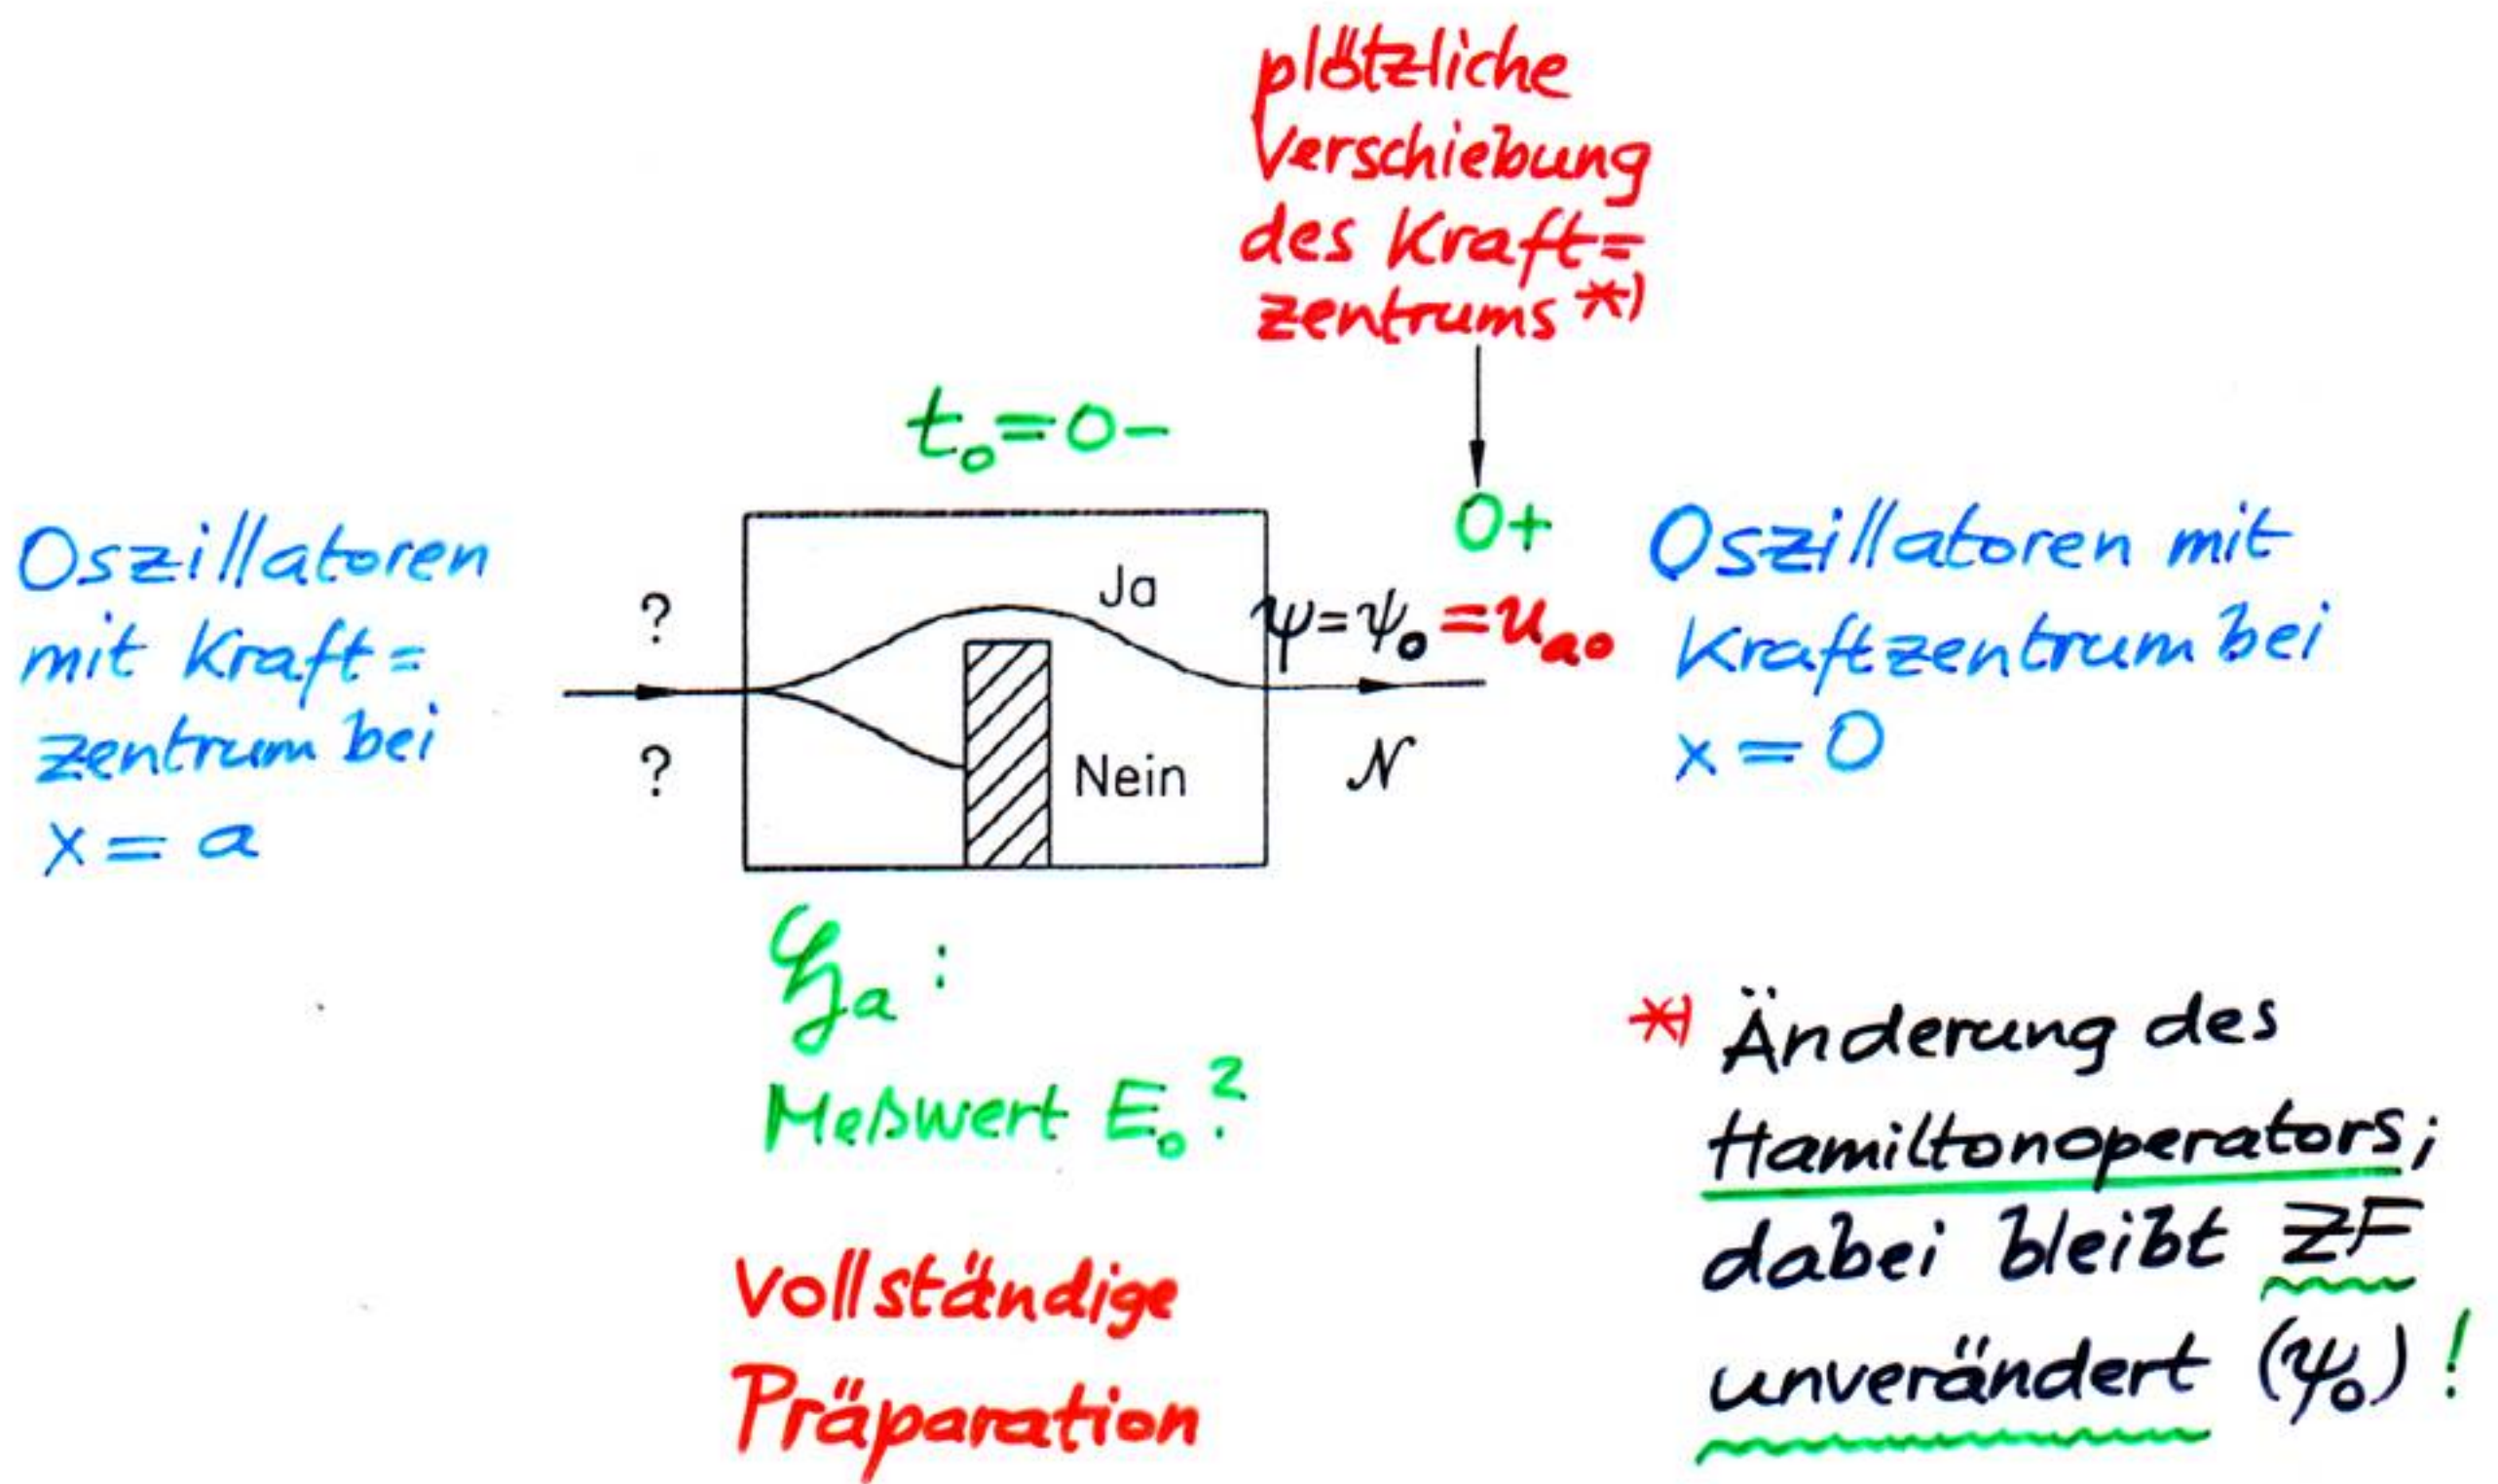 plötzliche
Verschiebung
des Kraft=
zentrums *)
t₀=0-
0+
Oszillatoren
mit Kraft=
zentrum bei
x = a
?
?
Ja
Nein
ψ=ψ₀ =u_{a0}
𝒩
Oszillatoren mit
Kraftzentrum bei
x = 0
:
Meßwert E₀?
Vollständige
Präparation
*) Änderung des
Hamiltonoperators;
dabei bleibt ZF
unverändert (ψ₀)!